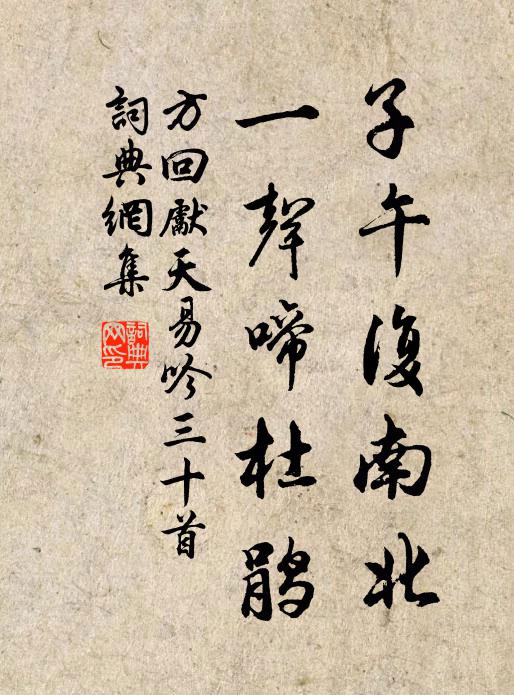 子午復南北
一聲啼杜鵑
方回獻天易吟三十首
詞典網集
詞典網印